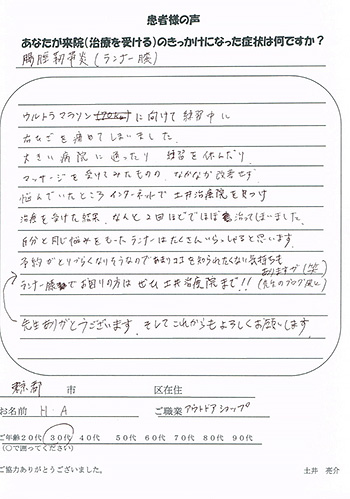 患者様の声
あなたが来院(治療を受ける)のきっかけになった症状は何ですか?
腸脛靭帯炎(ランナー膝)
ウルトラマラソン に向けて練習中に
右ひざを痛めてしまいました
大きい病院に通ったり 練習を休んだり
マッサージを受けてみたものの なかなか改善せず
悩んでいたところ インターネットで土井治療院を見つけ
治療を受けた結果、なんと2回ほどでほぼ治ってしまいました。
自分と同じ悩みをもったランナーはたくさんいらっしゃると思います。
予約がとりづらくなりそうなのであまり口コミを知られたくない気持ちも
ありますが(笑)
ランナー膝でお困りの方は ぜひ土井治療院まで!!(先生のブログ風に)
先生ありがとうございます。そしてこれからもよろしくお願いします。
東京都 市 区在住
お名前 H・A ご職業 アウトドアショップ
ご年齢20代 30代 40代 50代 60代 70代 80代 90代
(○で囲ってください)
ご協力ありがとうございました。 土井 亮介